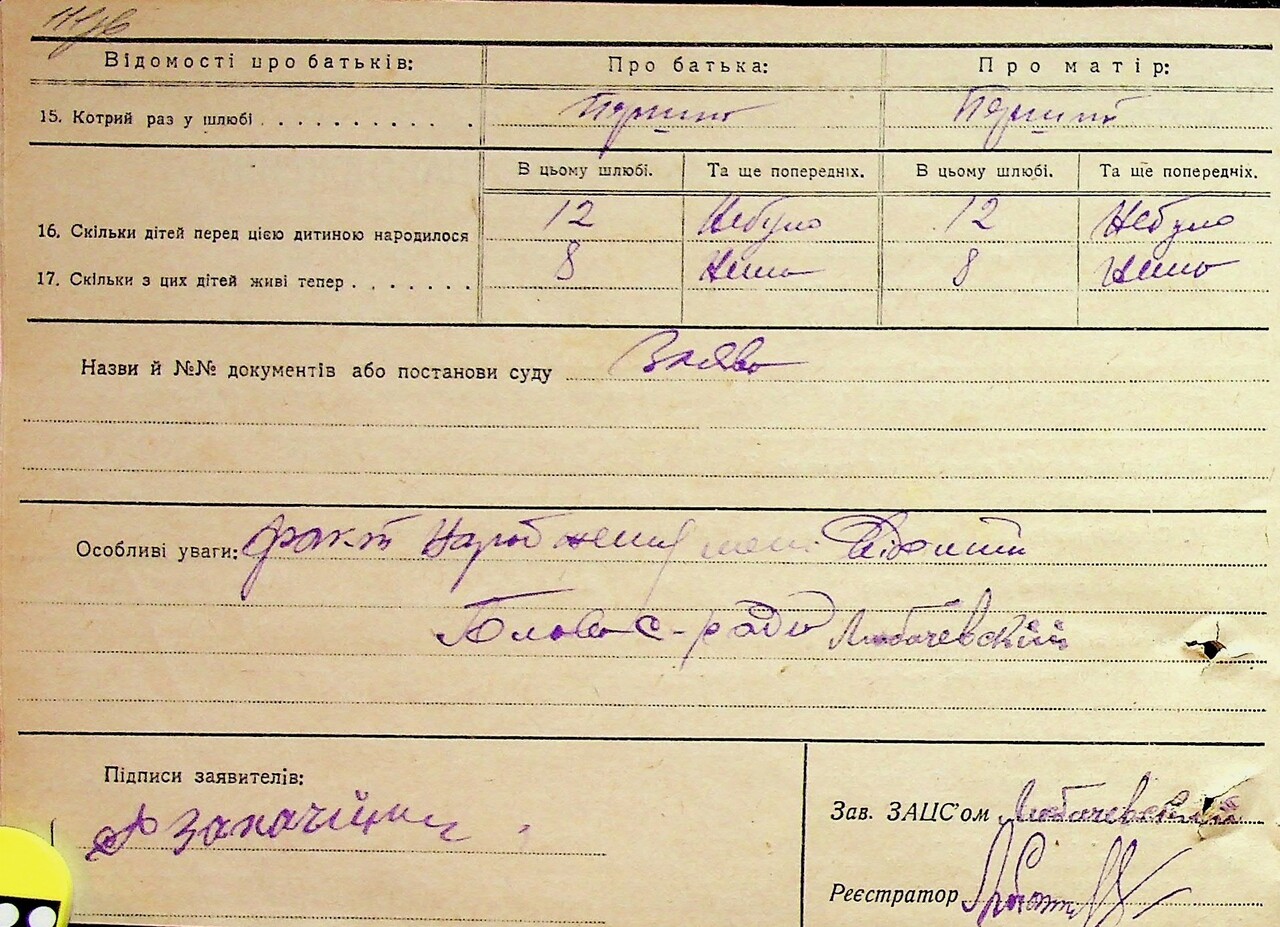 Відомості про батьків: Про батька: Про матір:
15. Котрий раз у шлюбі . . . . . . . . . . . Перший Перший
В цьому шлюбі. Та ще попередніх. В цьому шлюбі. Та ще попередніх.
16. Скільки дітей перед цією дитиною народилося 12 Небуло 12 Небуло
17. Скільки з цих дітей живі тепер . . . . . . . 8 8
Назви й №№ документів або постанови суду Заява
Особливі уваги: факт мені
с-ради Любачевский
Підписи заявителів:
Зав. ЗАЦС'ом Любачевский
Реєстратор